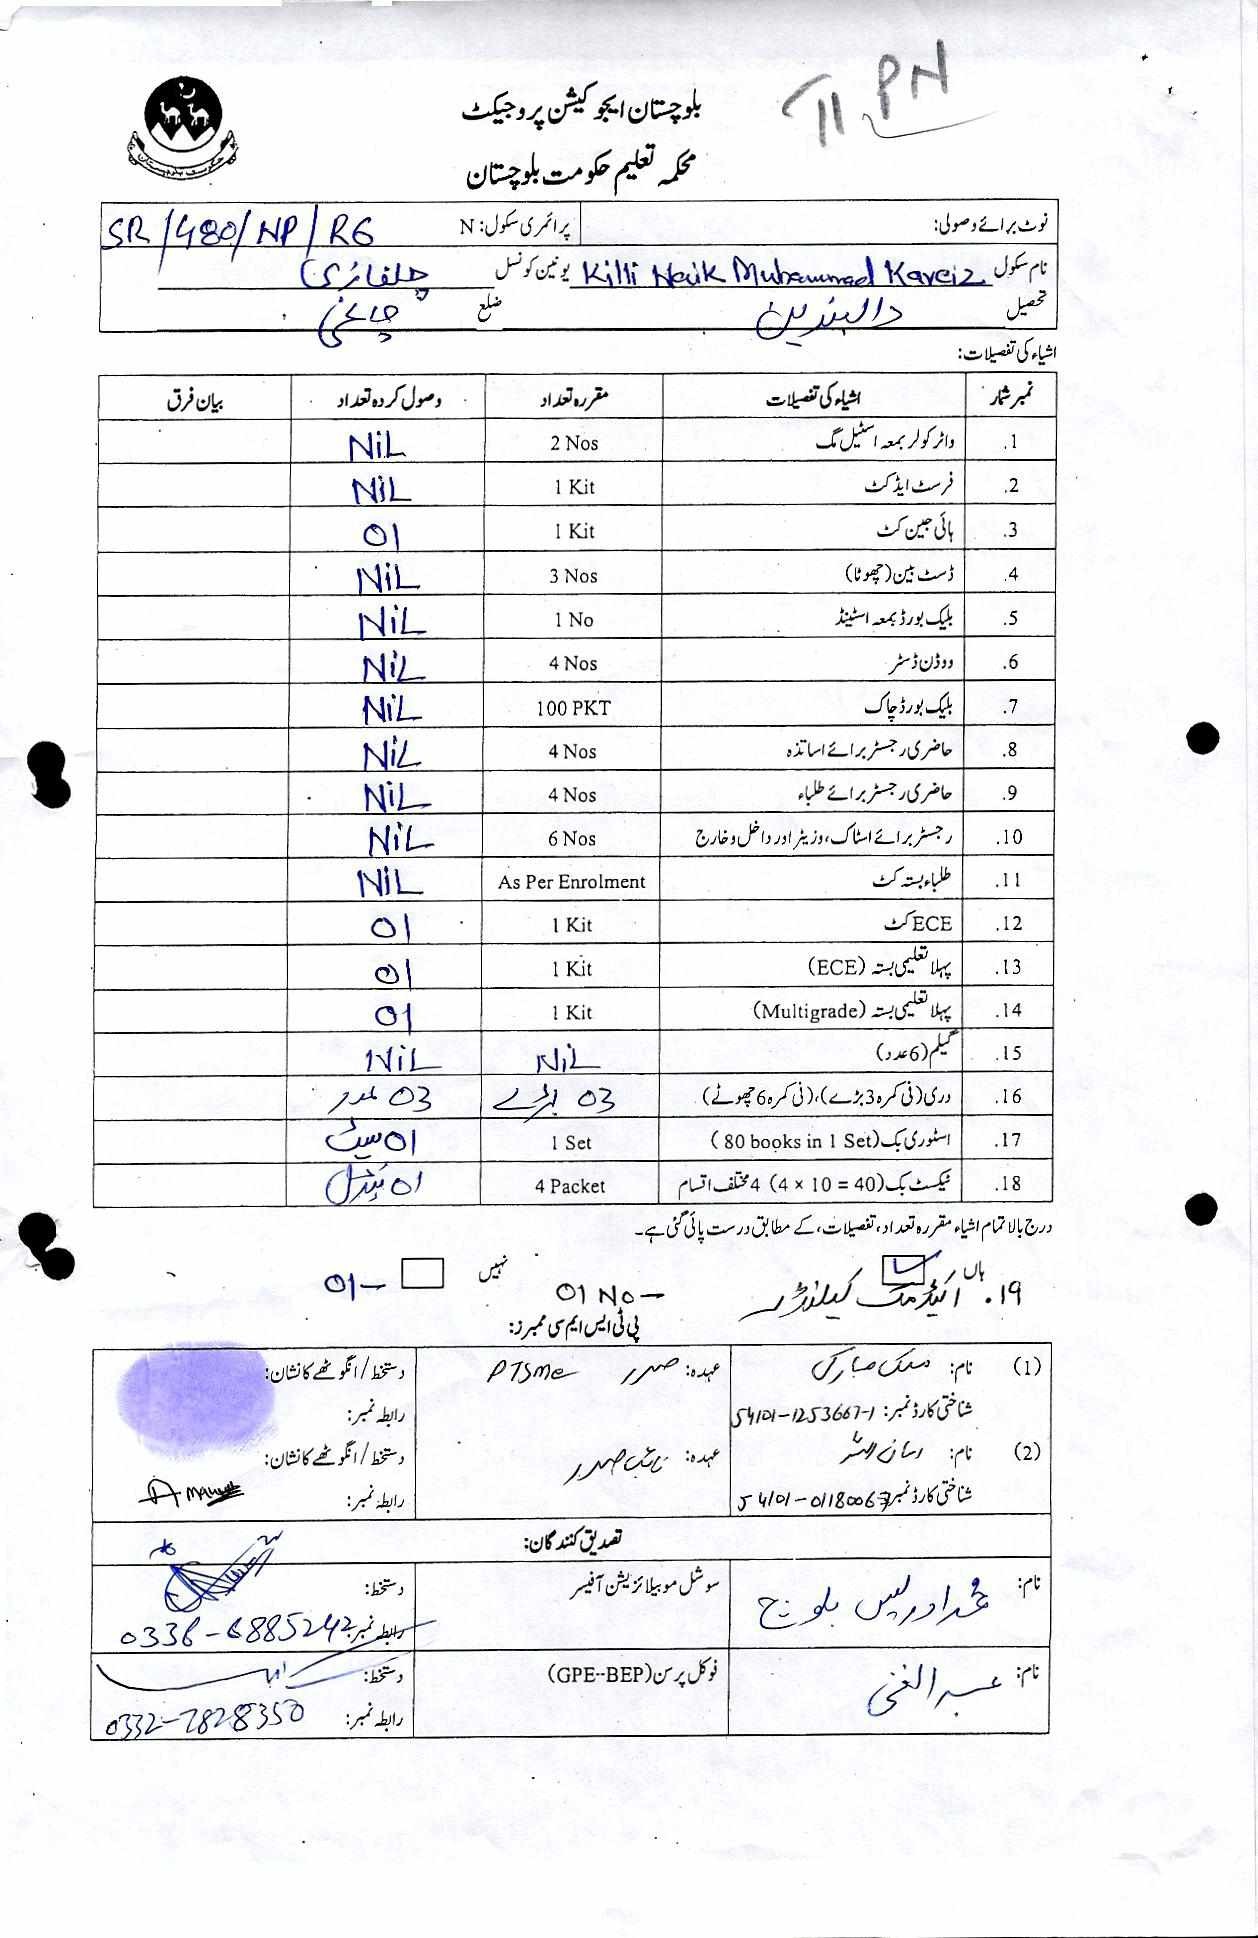 PN
بلوچستان ایجوکیشن پروجیکٹ
محکمہ تعلیم حکومت بلوچستان
نوٹ برائے وصولی: پرائمری سکول: N SR/480/NP/RG
نام سکول Killi Naik Muhammad Kareiz یونین کونسل
تحصیل دالبندین ضلع چاغی
اشیاء کی تفصیلات:
نمبر شمار اشیاء کی تفصیلات مقررہ تعداد وصول کردہ تعداد بیان فرق
1. واٹر کولر بمعہ اسٹیل مگ 2 Nos NiL
2. فرسٹ ایڈ کٹ 1 Kit NiL
3. ہائی جین کٹ 1 Kit 01
4. ڈسٹ بین (چھوٹا) 3 Nos NiL
5. بلیک بورڈ بمعہ اسٹینڈ 1 No NiL
6. ووڈن ڈسٹر 4 Nos NiL
7. بلیک بورڈ چاک 100 PKT NiL
8. حاضری رجسٹر برائے اساتذہ 4 Nos NiL
9. حاضری رجسٹر برائے طلباء 4 Nos NiL
10. رجسٹر برائے اسٹاک، وزیٹر اور داخل و خارج 6 Nos NiL
11. طلباء بستہ کٹ As Per Enrolment NiL
12. ECE کٹ 1 Kit 01
13. پہلا تعلیمی بستہ (ECE) 1 Kit 01
14. پہلا تعلیمی بستہ (Multigrade) 1 Kit 01
15. گلیم (6 عدد) NiL NiL
16. دری (فی کمرہ 3 بڑے)، (فی کمرہ 6 چھوٹے) 03 بڑے 03 عدد
17. اسٹوری بک (80 books in 1 Set) 1 Set 01 سیٹ
18. ٹیکسٹ بک (4 × 10 = 40) 4 مختلف اقسام 4 Packet 01 بنڈل
درج بالا تمام اشیاء مقررہ تعداد، تفصیلات، کے مطابق درست پائی گئی ہے۔
ہاں نہیں
19. اکیڈمک کیلنڈر 01 No – 01 –
پی ٹی ایس ایم سی ممبرز:
(1) نام: ملک مبارک عہدہ: صدر PTSMC دستخط/انگوٹھے کا نشان:
شناختی کارڈ نمبر: 54101-1253667-1 رابطہ نمبر:
(2) نام: عہدہ: نائب صدر دستخط/انگوٹھے کا نشان:
شناختی کارڈ نمبر: رابطہ نمبر:
تصدیق کنندگان:
نام: محمد ادریس بلوچ سوشل موبیلائزیشن آفیسر دستخط:
رابطہ نمبر: 0336-6885242
نام: عبدالغنی فوکل پرسن (GPE--BEP) دستخط:
رابطہ نمبر: 0332-7828350